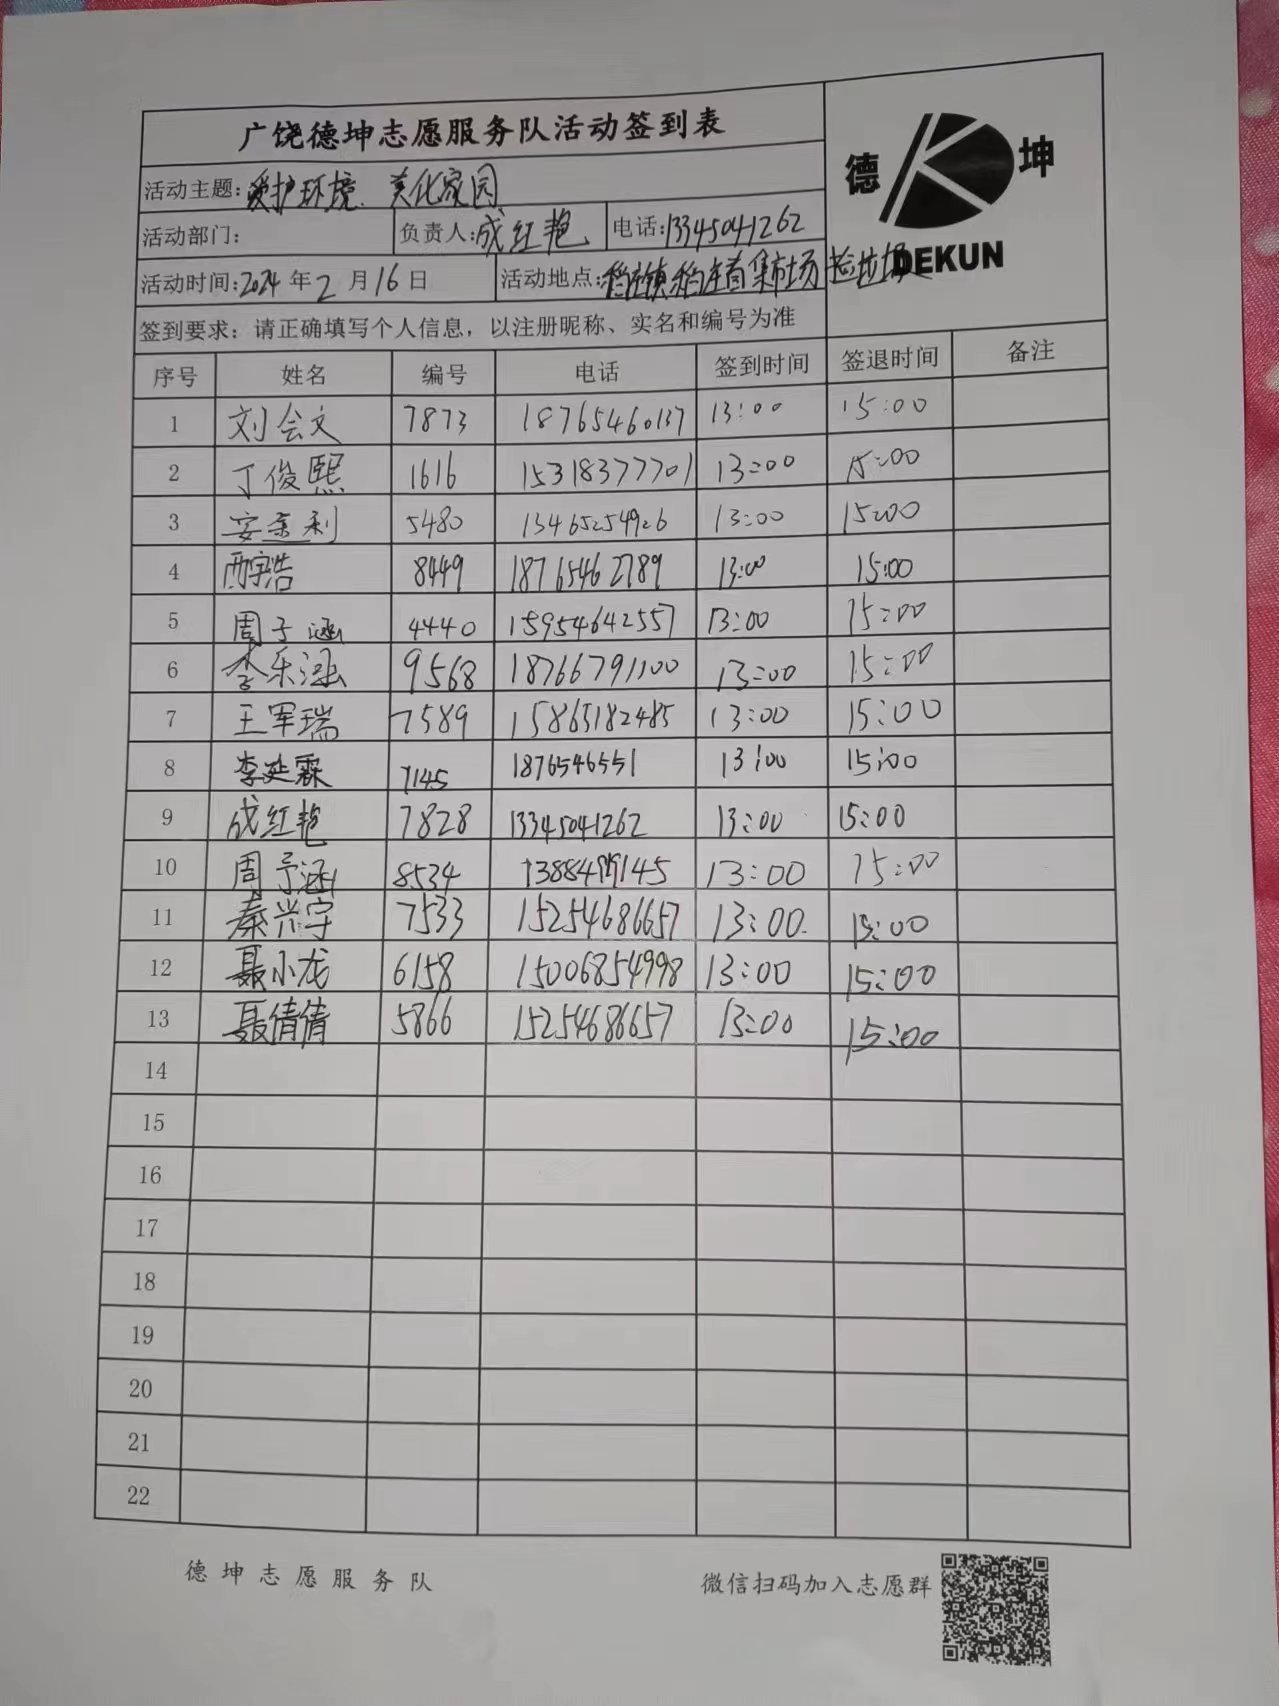 广饶德坤志愿服务队活动签到表
德 坤
DEKUN
活动主题：爱护环境、美化家园
活动部门： 负责人：成红艳 电话：13345041262
活动时间：2024年2月16日 活动地点：稻庄镇稻庄首集市场捡垃圾
签到要求：请正确填写个人信息，以注册昵称、实名和编号为准
序号 姓名 编号 电话 签到时间 签退时间 备注
1 刘会文 7873 18765460137 13:00 15:00
2 丁俊熙 1616 15318377701 13:00 15:00
3 安金利 5480 13465254926 13:00 15:00
4 宇浩 8449 18765462789 13:00 15:00
5 周子涵 4440 15954642557 13:00 15:00
6 李乐涵 9568 18766791100 13:00 15:00
7 王军瑞 7589 15865182485 13:00 15:00
8 李延霖 7145 1876546551 13:00 15:00
9 成红艳 7828 13345041262 13:00 15:00
10 周予涵 8534 13:00 15:00
11 秦兴宇 7533 15254686657 13:00 15:00
12 聂小龙 6158 15006854998 13:00 15:00
13 聂倩倩 5866 15254686657 13:00 15:00
14
15
16
17
18
19
20
21
22
德坤志愿服务队 微信扫码加入志愿群